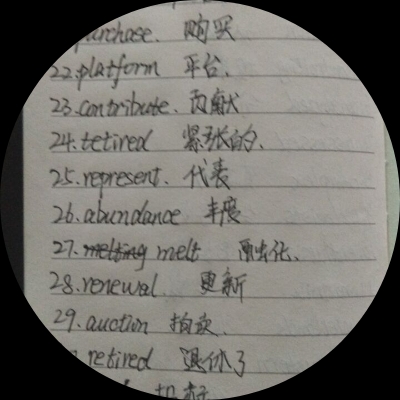 purchase. 购买
22.platform 平台.
23.contribute. 贡献
24.tetired 紧张的.
25.represent. 代表
26.abundance 丰度
27. melt 融化.
28.renewal 更新
29.auctun 拍卖.
retired 退休了